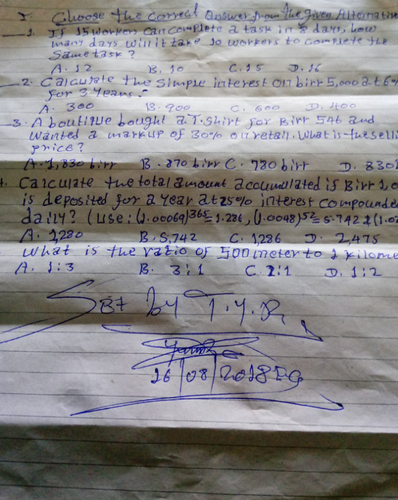 I. Choose the correct answer from the given Alternative
1. If 15 workers can complete a task in 8 days, how
many days will it take 10 workers to complete the
same task?
A. 12 B. 10 C. 15 D. 16
2. Calculate the simple interest on birr 5,000 at 6%
for 3 years.
A. 300 B. 900 C. 600 D. 400
3. A boutique bought a T-shirt for Birr 546 and
wanted a markup of 30% on retail. What is the selli
price?
A. 1,830 birr B. 870 birr C. 780 birr D. 830
Calculate the total amount accumulated if Birr 1,0
is deposited for a year at 25% interest compounde
daily? (use: (1.00064)365 = 1.286, (1.0048)52 = 5.742 & (1.0
A. 1280 B. 5,742 C. 1286 D. 2,475
what is the ratio of 500 meter to 1 kilome
A. 1:3 B. 3:1 C. 2:1 D. 1:2
by T.Y.R
16/08/2018 EC